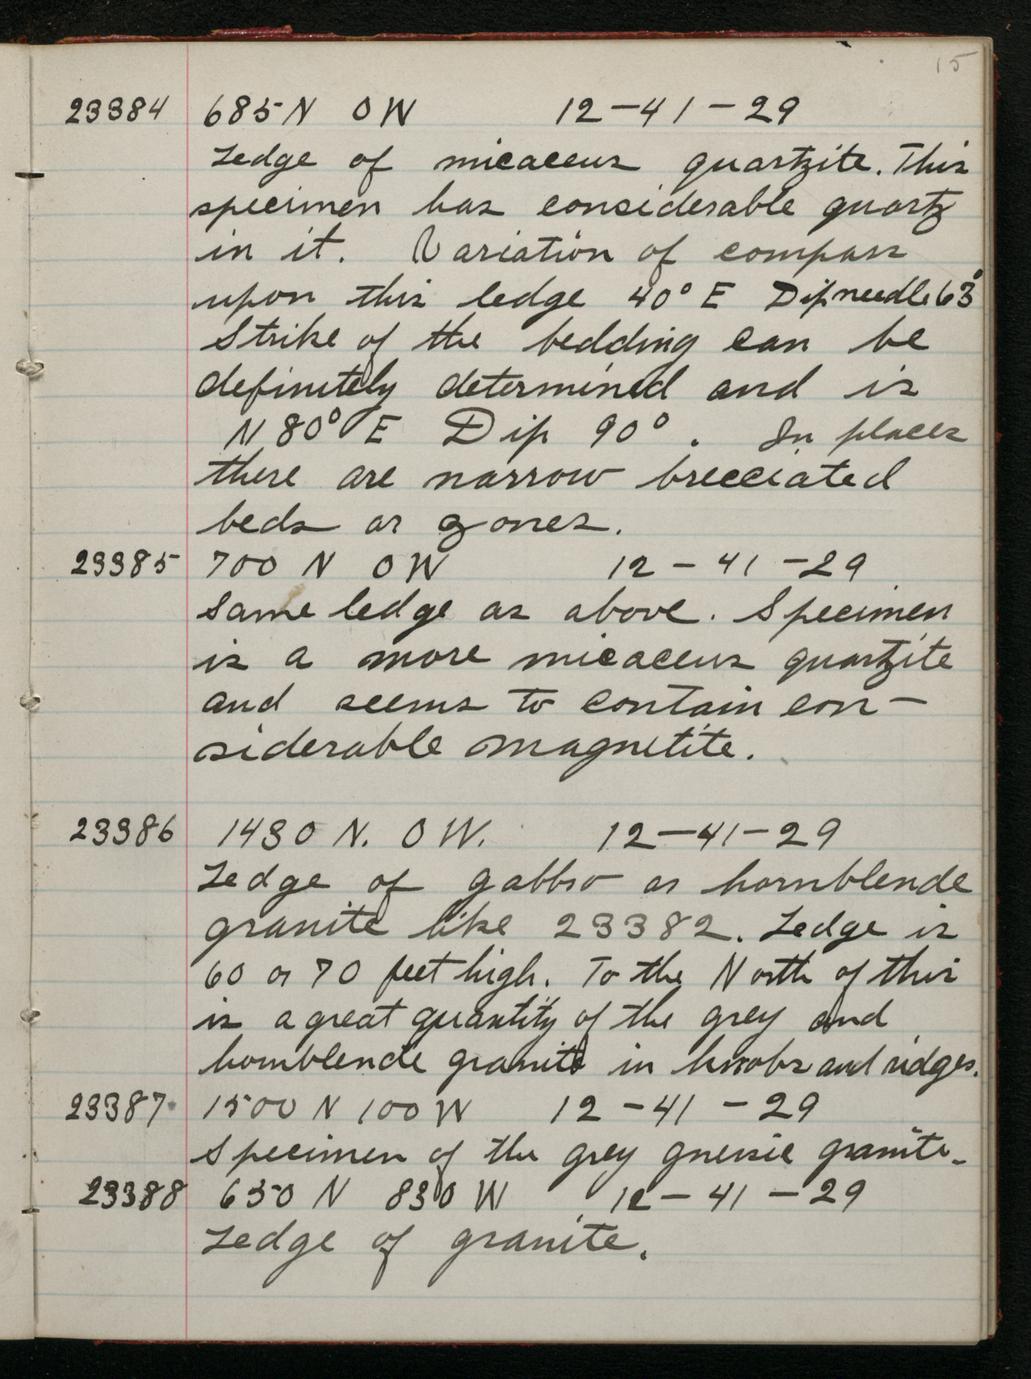 15
23384 685 N 0 W 12-41-29
Ledge of micaceus quartzite. This
specimen has considerable quartz
in it. Variation of compass
upon this ledge 40° E Dip needle 63°
Strike of the bedding can be
definitely determined and is
N 80° E Dip 90°. In places
there are narrow brecciated
beds or zones.
23385 700 N 0 W 12-41-29
Same ledge as above. Specimen
is a more micaceus quartzite
and seems to contain con-
siderable magnetite.
23386 1430 N. 0 W. 12-41-29
Ledge of gabbro or hornblende
granite like 23382. Ledge is
60 or 70 feet high. To the North of this
is a great quantity of the grey and
hornblende granite in knobs and ridges.
23387 1500 N 100 W 12-41-29
Specimen of the grey gneisic granite.
23388 650 N 830 W 12-41-29
Ledge of granite.